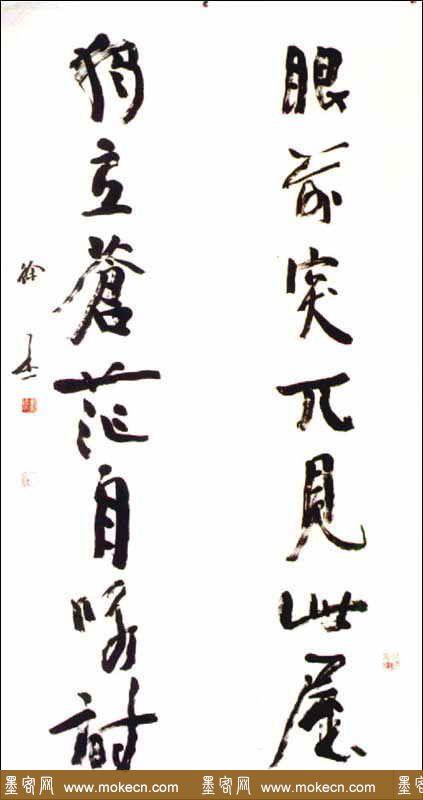 眼前突兀見此屋
獨立蒼茫自咏詩
徐
墨客网 www.mokecn.com 墨客网 www.mokecn.com 墨客